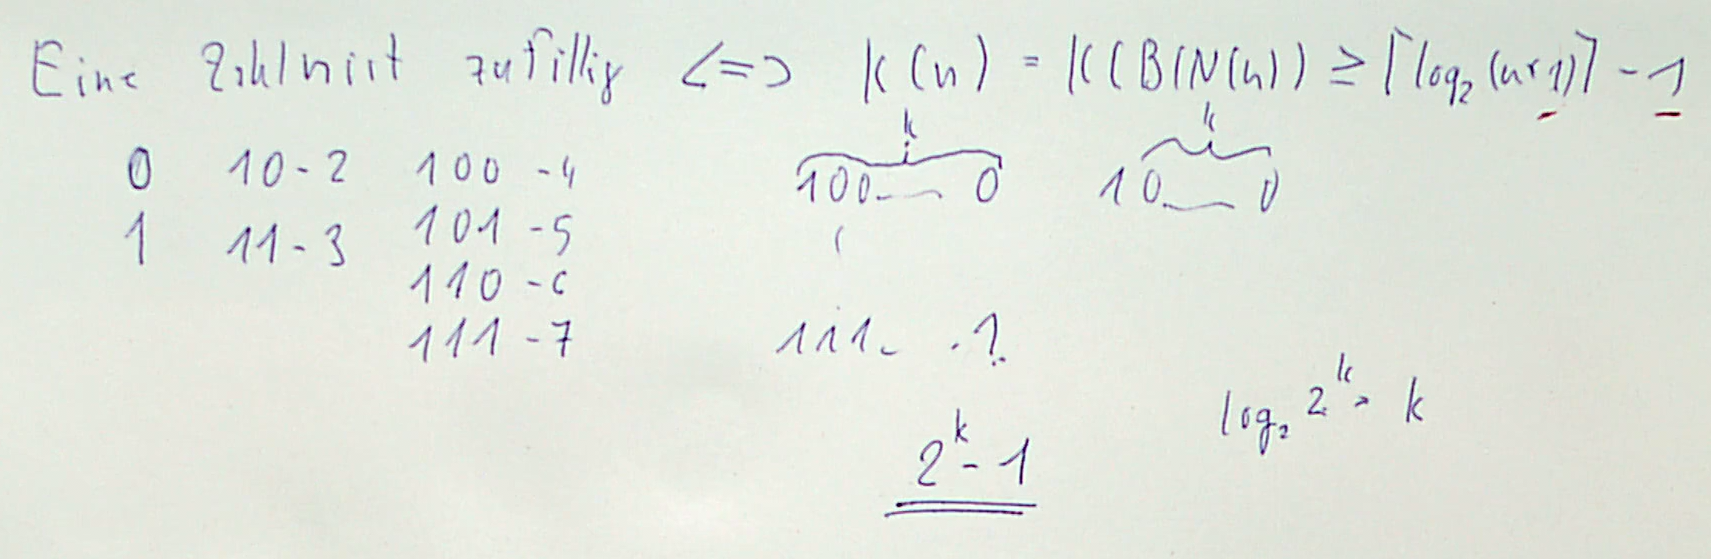 Eine Zahl n ist zufällig <=> K(n) = K(BIN(n)) ≥ ⌈log₂(n+1)⌉ - 1
k k
0 10-2 100-4 100 — 0 10 — 0
1 11-3 101-5
110-6
111-7 111. . 1.
log₂ 2^k = k
2^k - 1